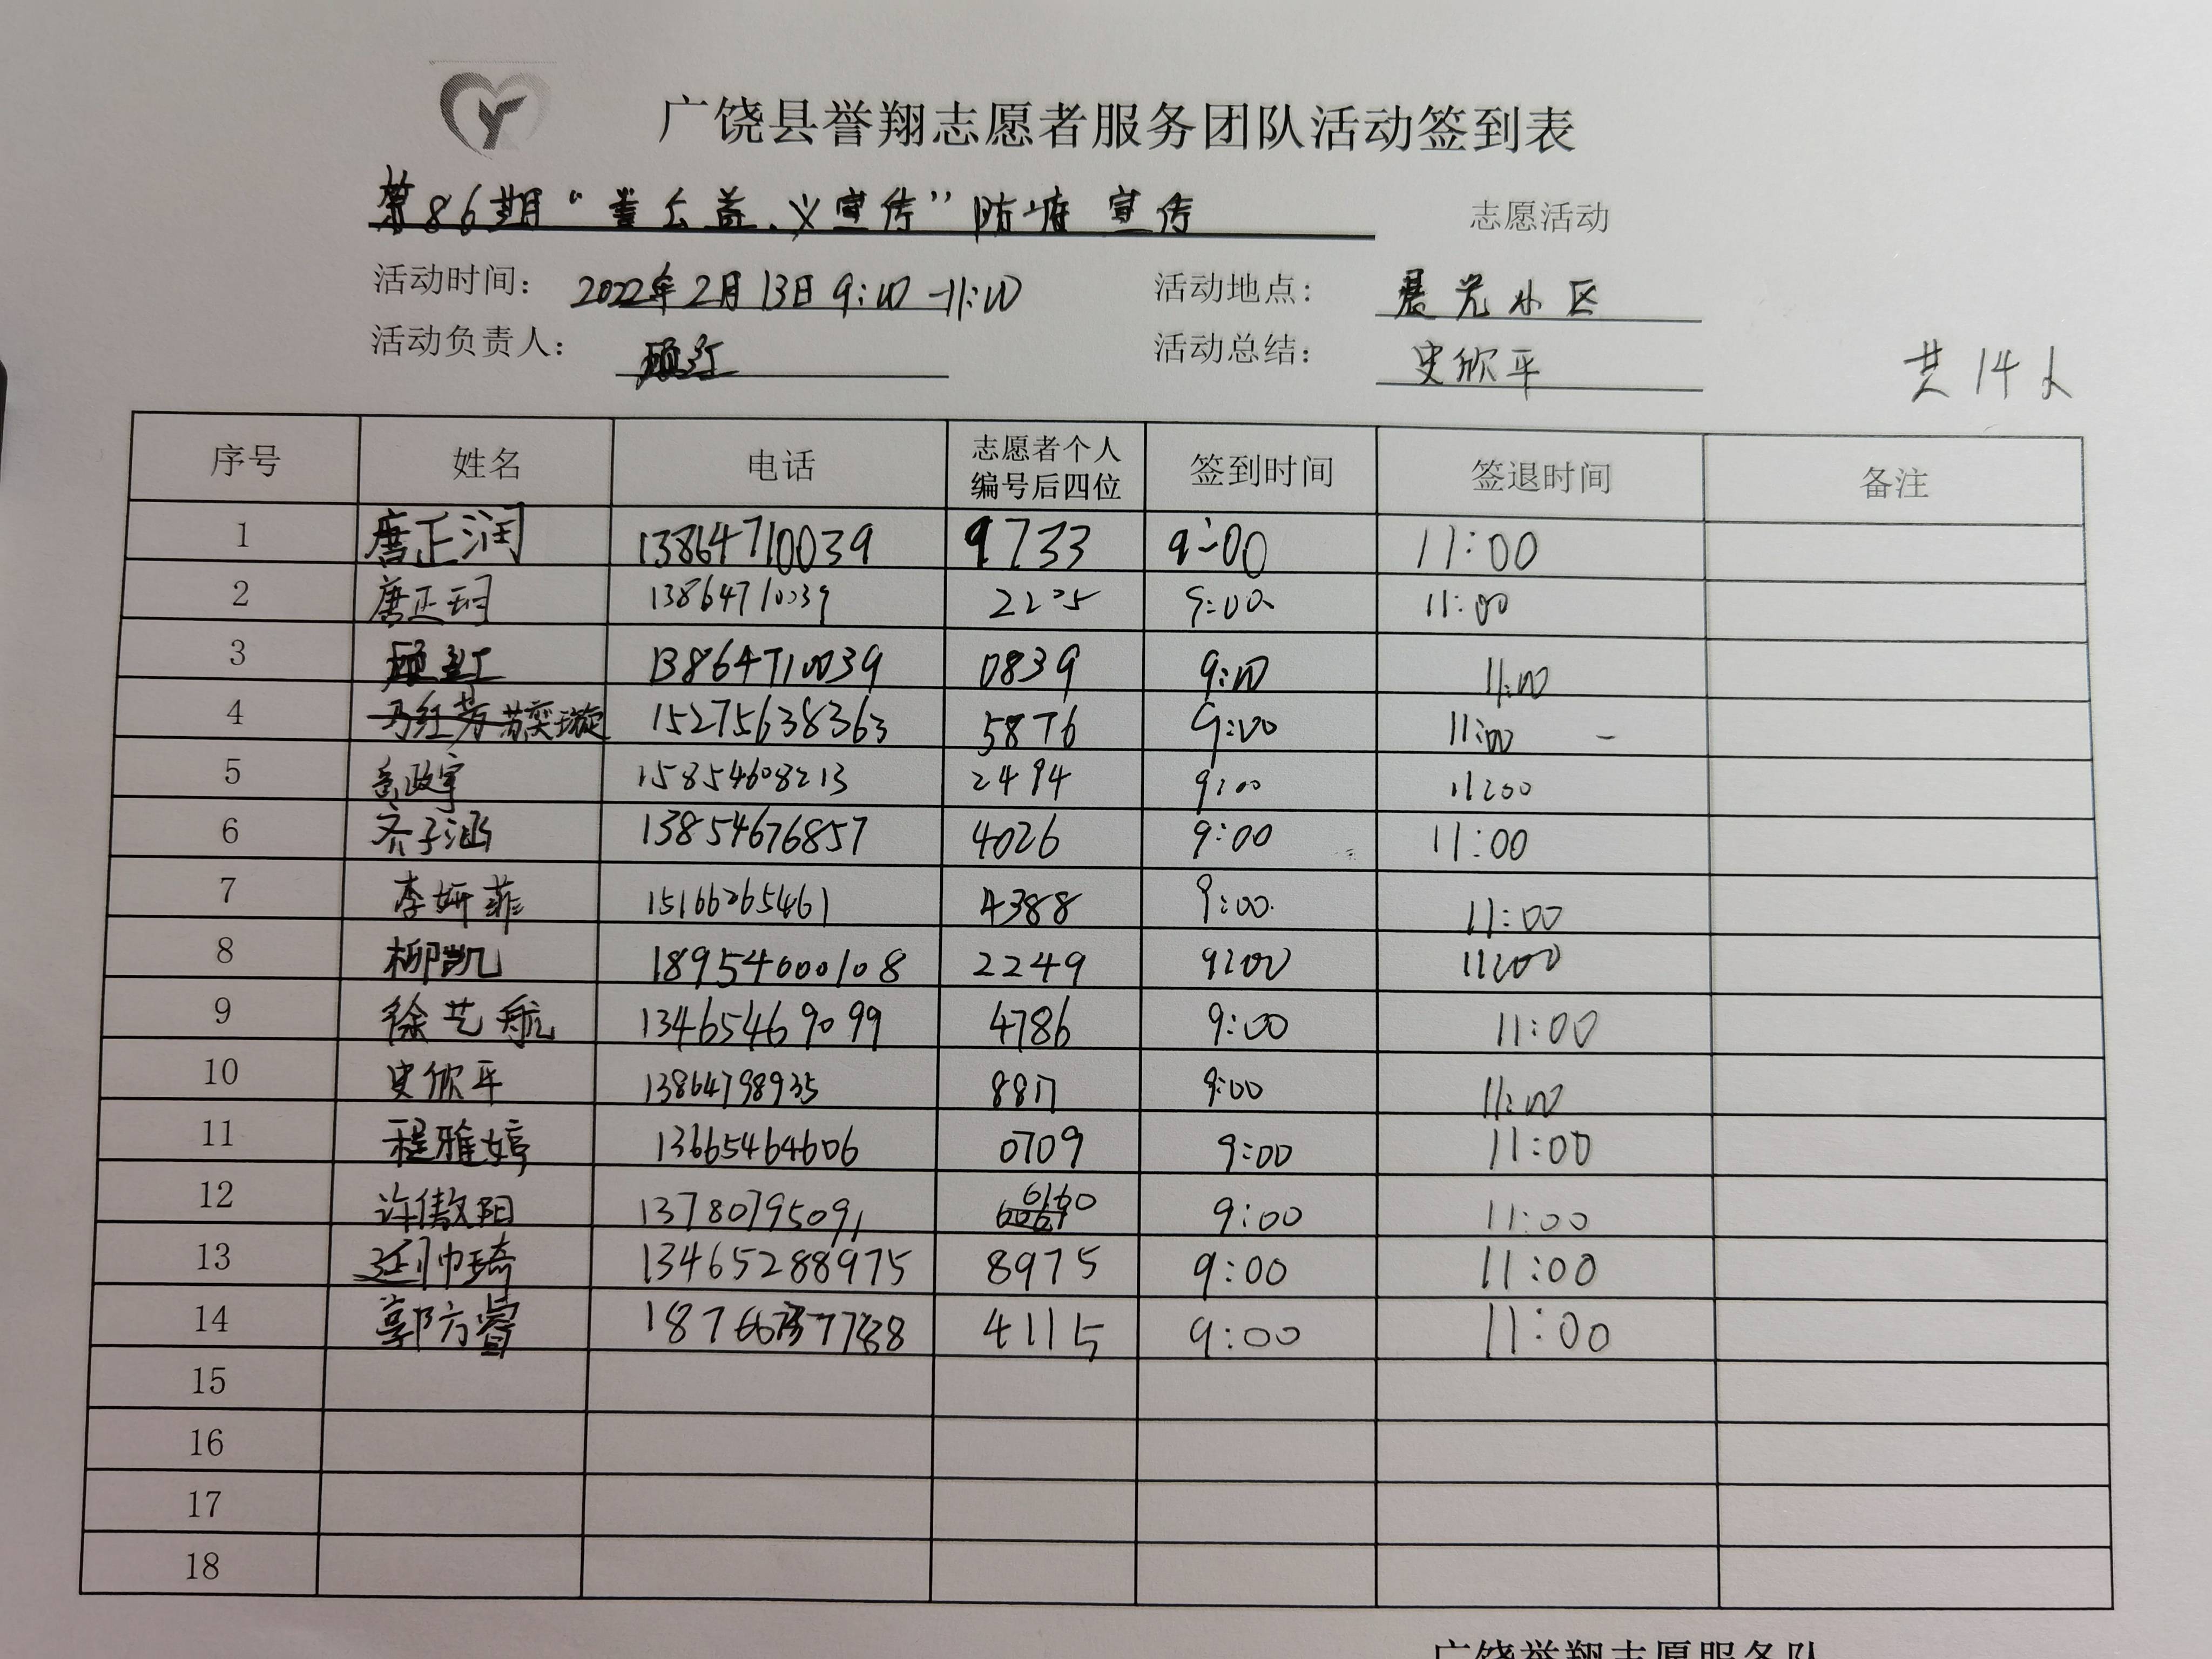 广饶县誉翔志愿者服务团队活动签到表
第86期“誉公益、义宣传”防疫宣传 志愿活动
活动时间: 2022年2月13日9:00-11:00 活动地点: 晨光小区
活动负责人: 顾红 活动总结: 史欣平 共14人
序号 姓名 电话 志愿者个人编号后四位 签到时间 签退时间 备注
1 唐正润 13864710039 9733 9:00 11:00
2 唐正珂 13864710039 2205 9:00 11:00
3 顾红 13864710039 0839 9:00 11:00
4 马红芳 苏奕璇 15275638363 5876 9:00 11:00
5 政宇 15854608213 2494 9:00 11:00
6 齐子涵 13854676857 4026 9:00 11:00
7 李妍菲 15166265461 4388 9:00 11:00
8 柳凯 18954000108 2249 9:00 11:00
9 徐艺航 13465469099 4786 9:00 11:00
10 史欣平 13864798935 8817 9:00 11:00
11 程雅婷 13665464606 0709 9:00 11:00
12 许傲阳 13780795091 6160 9:00 11:00
13 延帅琦 13465288975 8975 9:00 11:00
14 郭方睿 4115 9:00 11:00
15
16
17
18
广饶誉翔志愿服务队